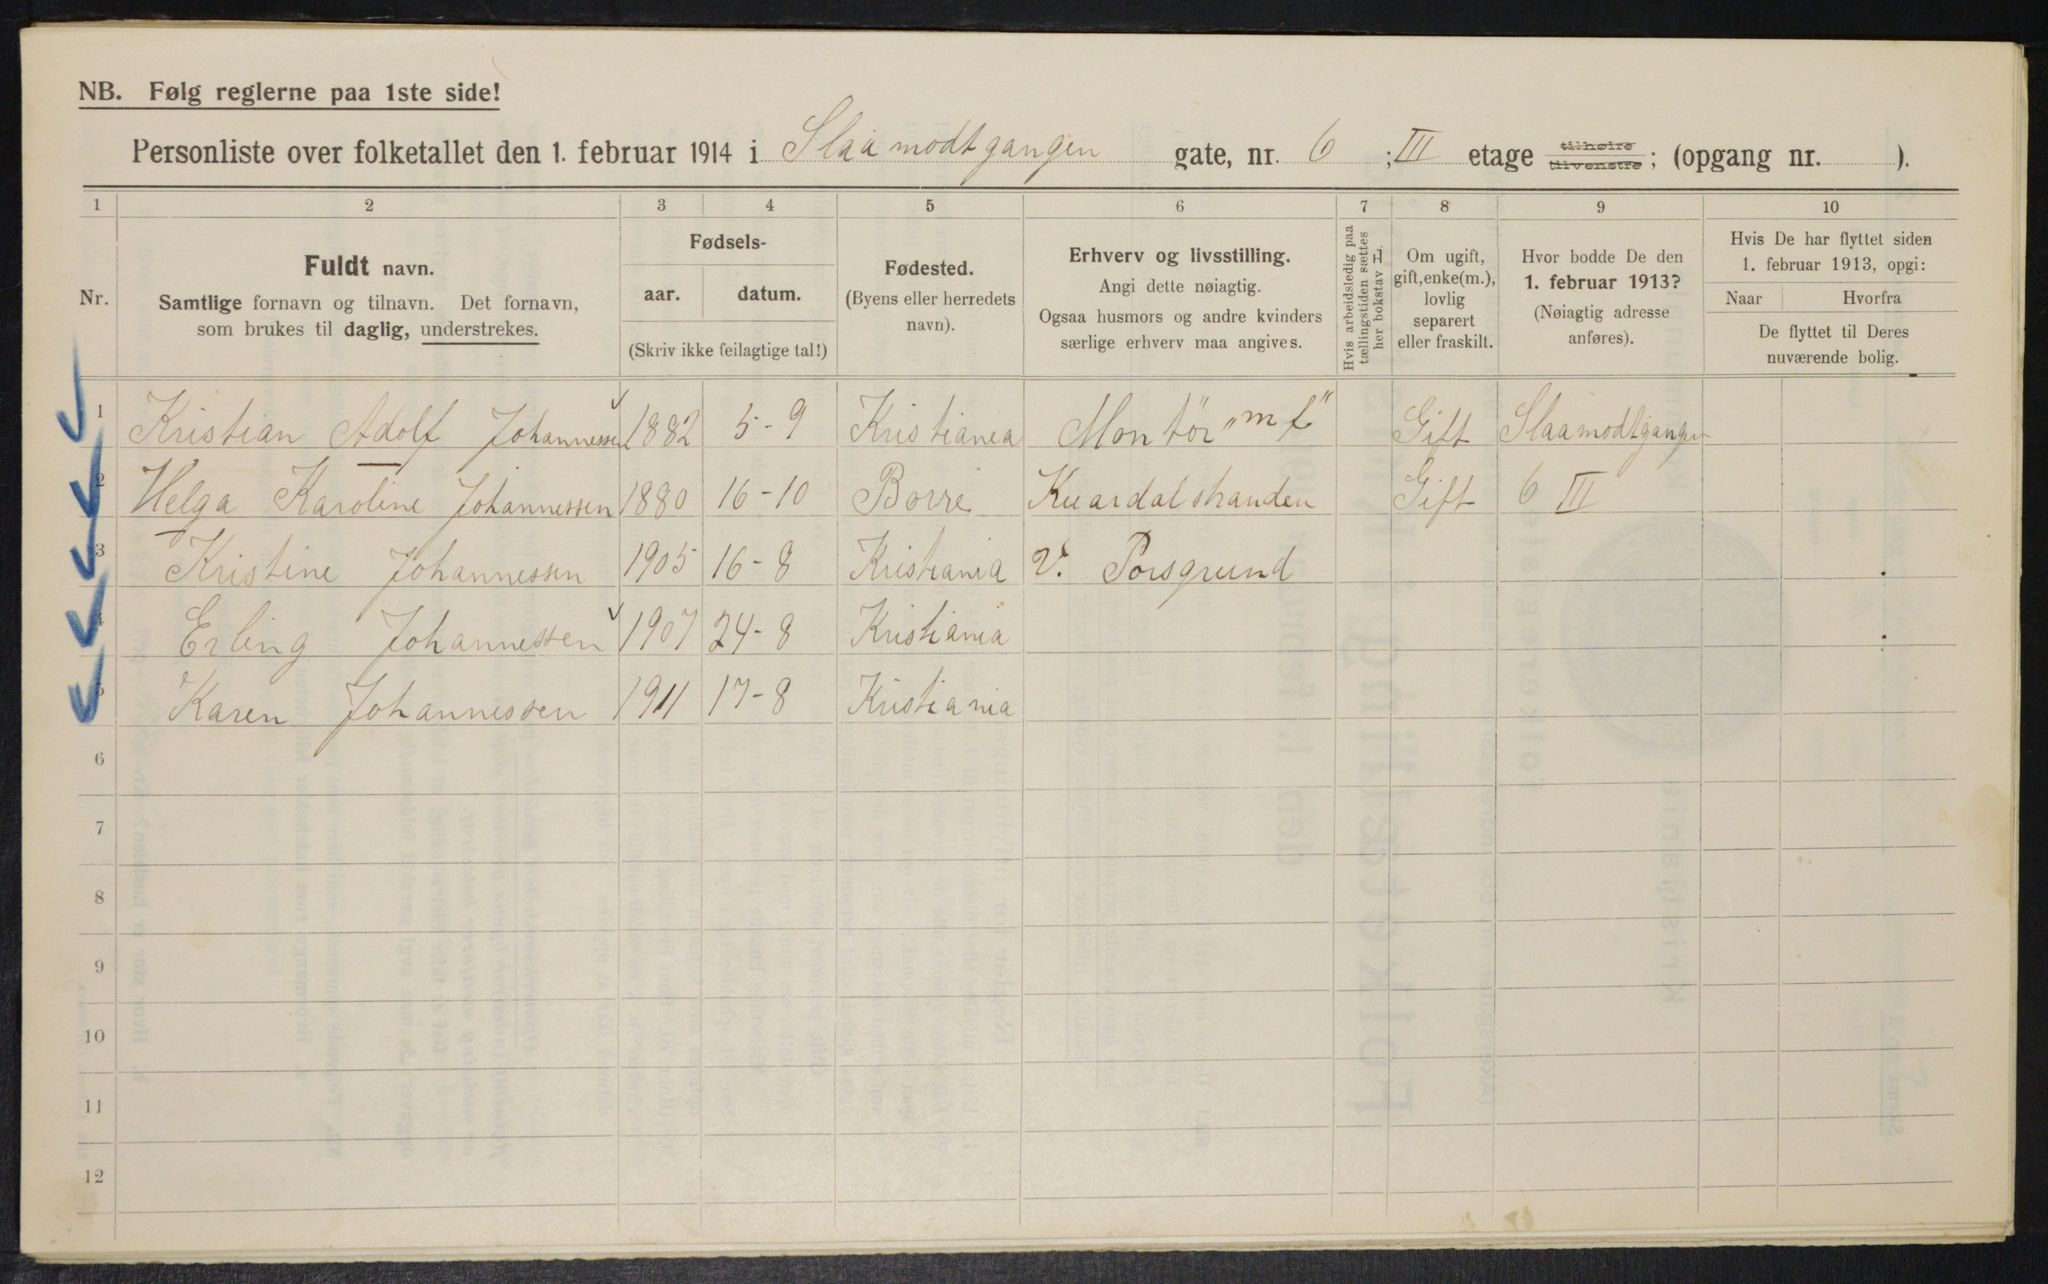 NB. Følg reglerne paa 1ste side!
Personliste over folketallet den 1. februar 1914 i Slaamodtgangen gate, nr. 6 ; III etage tilhøire tilvenstre ; (opgang nr. ).
1 2 3 4 5 6 7 8 9 10
Nr.
Fuldt navn.
Samtlige fornavn og tilnavn. Det fornavn,
som brukes til daglig, understrekes.
Fødsels-
aar. datum.
(Skriv ikke feilagtige tal!)
Fødested.
(Byens eller herredets
navn).
Erhverv og livsstilling.
Angi dette nøiagtig.
Ogsaa husmors og andre kvinders
særlige erhverv maa angives.
Hvis arbeidsledig paa
tællingstiden sættes
her bokstav L.
Om ugift,
gift, enke(m.),
lovlig
separert
eller fraskilt.
Hvor bodde De den
1. februar 1913?
(Nøiagtig adresse
anføres).
Hvis De har flyttet siden
1. februar 1913, opgi:
Naar Hvorfra
De flyttet til Deres
nuværende bolig.
1 Kristian Adolf Johannessen 1882 5-9 Kristiania Montör "m f" Gift Slaamodtgangen
2 Helga Karoline Johannessen 1880 16-10 Borre Kuardalstranden Gift 6 III
3 Kristine Johannessen 1905 16-8 Kristiania v. Porsgrund
4 Erling Johannessen 1907 24-8 Kristiania
5 Karen Johannessen 1911 17-8 Kristiania
6
7
8
9
10
11
12